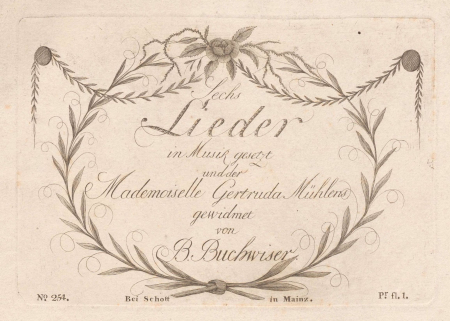 Sechs
Lieder
in Musik gesetzt
und der
Mademoiselle Gertruda Mühlens
gewidmet
von
B. Buchwiser.
No. 254. Bei Schott in Mainz. Pr fl. 1.